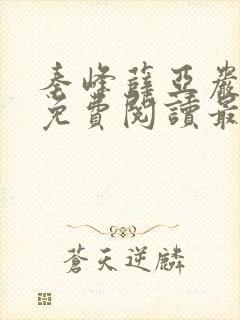 秦峰薛亞嚴
免費閱讀最
蒼天逆麟